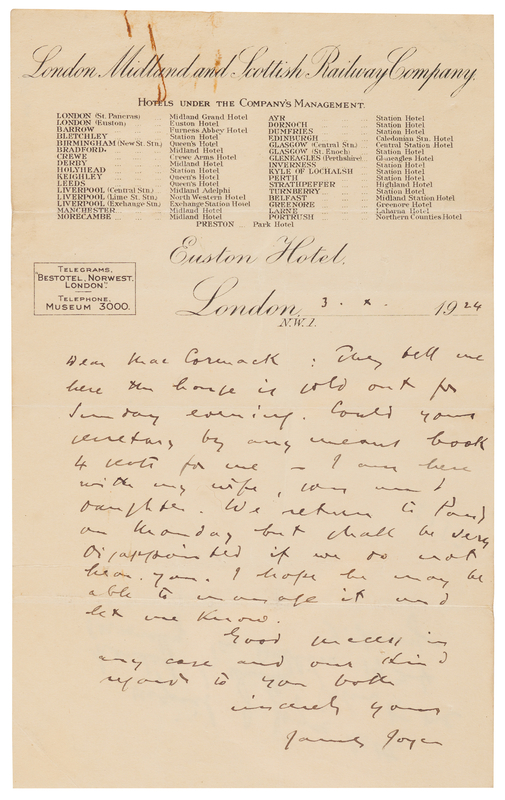 London Midland and Scottish Railway Company.
HOTELS UNDER THE COMPANY'S MANAGEMENT.
LONDON (St. Pancras) ... Midland Grand Hotel
LONDON (Euston) ... Euston Hotel
BARROW ... Furness Abbey Hotel
BLETCHLEY ... Station Hotel
BIRMINGHAM (New St. Stn.) Queen's Hotel
BRADFORD. ... Midland Hotel
CREWE ... Crewe Arms Hotel
DERBY ... Midland Hotel
HOLYHEAD ... Station Hotel
KEIGHLEY ... Queen's Hotel
LEEDS ... Queen's Hotel
LIVERPOOL (Central Stn.) Midland Adelphi
LIVERPOOL (Lime St. Stn.) North Western Hotel
LIVERPOOL (Exchange Stn.) Exchange Station Hotel
MANCHESTER ... Midland Hotel
MORECAMBE ... Midland Hotel
AYR ... Station Hotel
DORNOCH ... Station Hotel
DUMFRIES ... Station Hotel
EDINBURGH ... Caledonian Stn. Hotel
GLASGOW (Central Stn.) Central Station Hotel
GLASGOW (St. Enoch) ... Station Hotel
GLENEAGLES (Perthshire) Gleneagles Hotel
INVERNESS ... Station Hotel
KYLE OF LOCHALSH ... Station Hotel
PERTH ... Station Hotel
STRATHPEFFER ... Highland Hotel
TURNBERRY ... Station Hotel
BELFAST ... Midland Station Hotel
GREENORE ... Greenore Hotel
LARNE ... Laharna Hotel
PORTRUSH ... Northern Counties Hotel
PRESTON ... Park Hotel
Euston Hotel.
TELEGRAMS,
"BESTOTEL, NORWEST,
LONDON".
TELEPHONE,
MUSEUM 3000.
London, 3. x. 1924
N.W.1.
Dear MacCormack : They tell me
here the house is sold out for
Sunday evening. Could your
secretary by any means book
4 seats for me – I am here
with my wife, son and
daughter. We return to Paris
on Monday but shall be very
disappointed if we do not
hear you. I hope he may be
able to manage it and
let me know.
Good success in
any case and our kind
regards to you both
sincerely yours
James Joyce